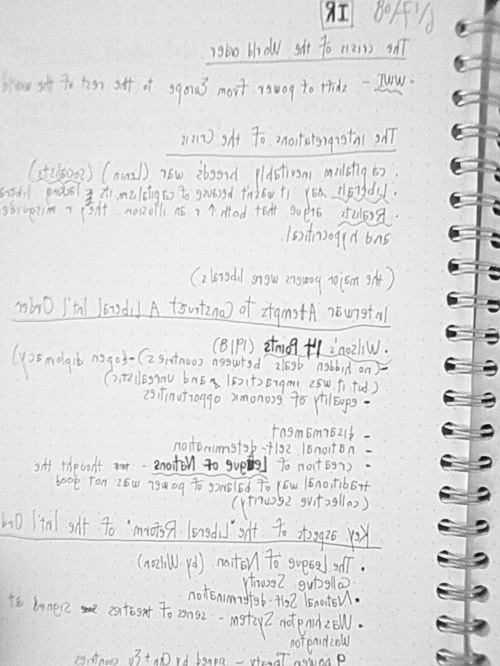 IR
The crisis of the World order
• WWI - shift of power from Europe to the rest of the world
The Interpretations of the Crisis
• capitalism inevitably breeds war (Lenin) (socialists)
• Liberals say it wasn't because of capitalism, it's lacking liberal
• Realists argue that both ↑ r an illusion. they r misguided
and hypocritical.
(the major powers were liberals)
Interwar Attempt To Construct A Liberal Int'l Order
• Wilson's 14 Points (1918)
- (no hidden deals between countries) - (open diplomacy)
(but it was impractical and unrealistic)
- equality of economic opportunities
- disarmament
- national self-determination
- creation of League of Nations - thought the
traditional way of balance of power was not good
(collective security)
Key aspects of the "Liberal Reform" of the Int'l Ord
• The League of Nation (by Wilson)
Collective Security
• National Self-determination
• Washington System - series of treaties signed at
Washington
9 power Treaty - signed by Chn + Eu countries